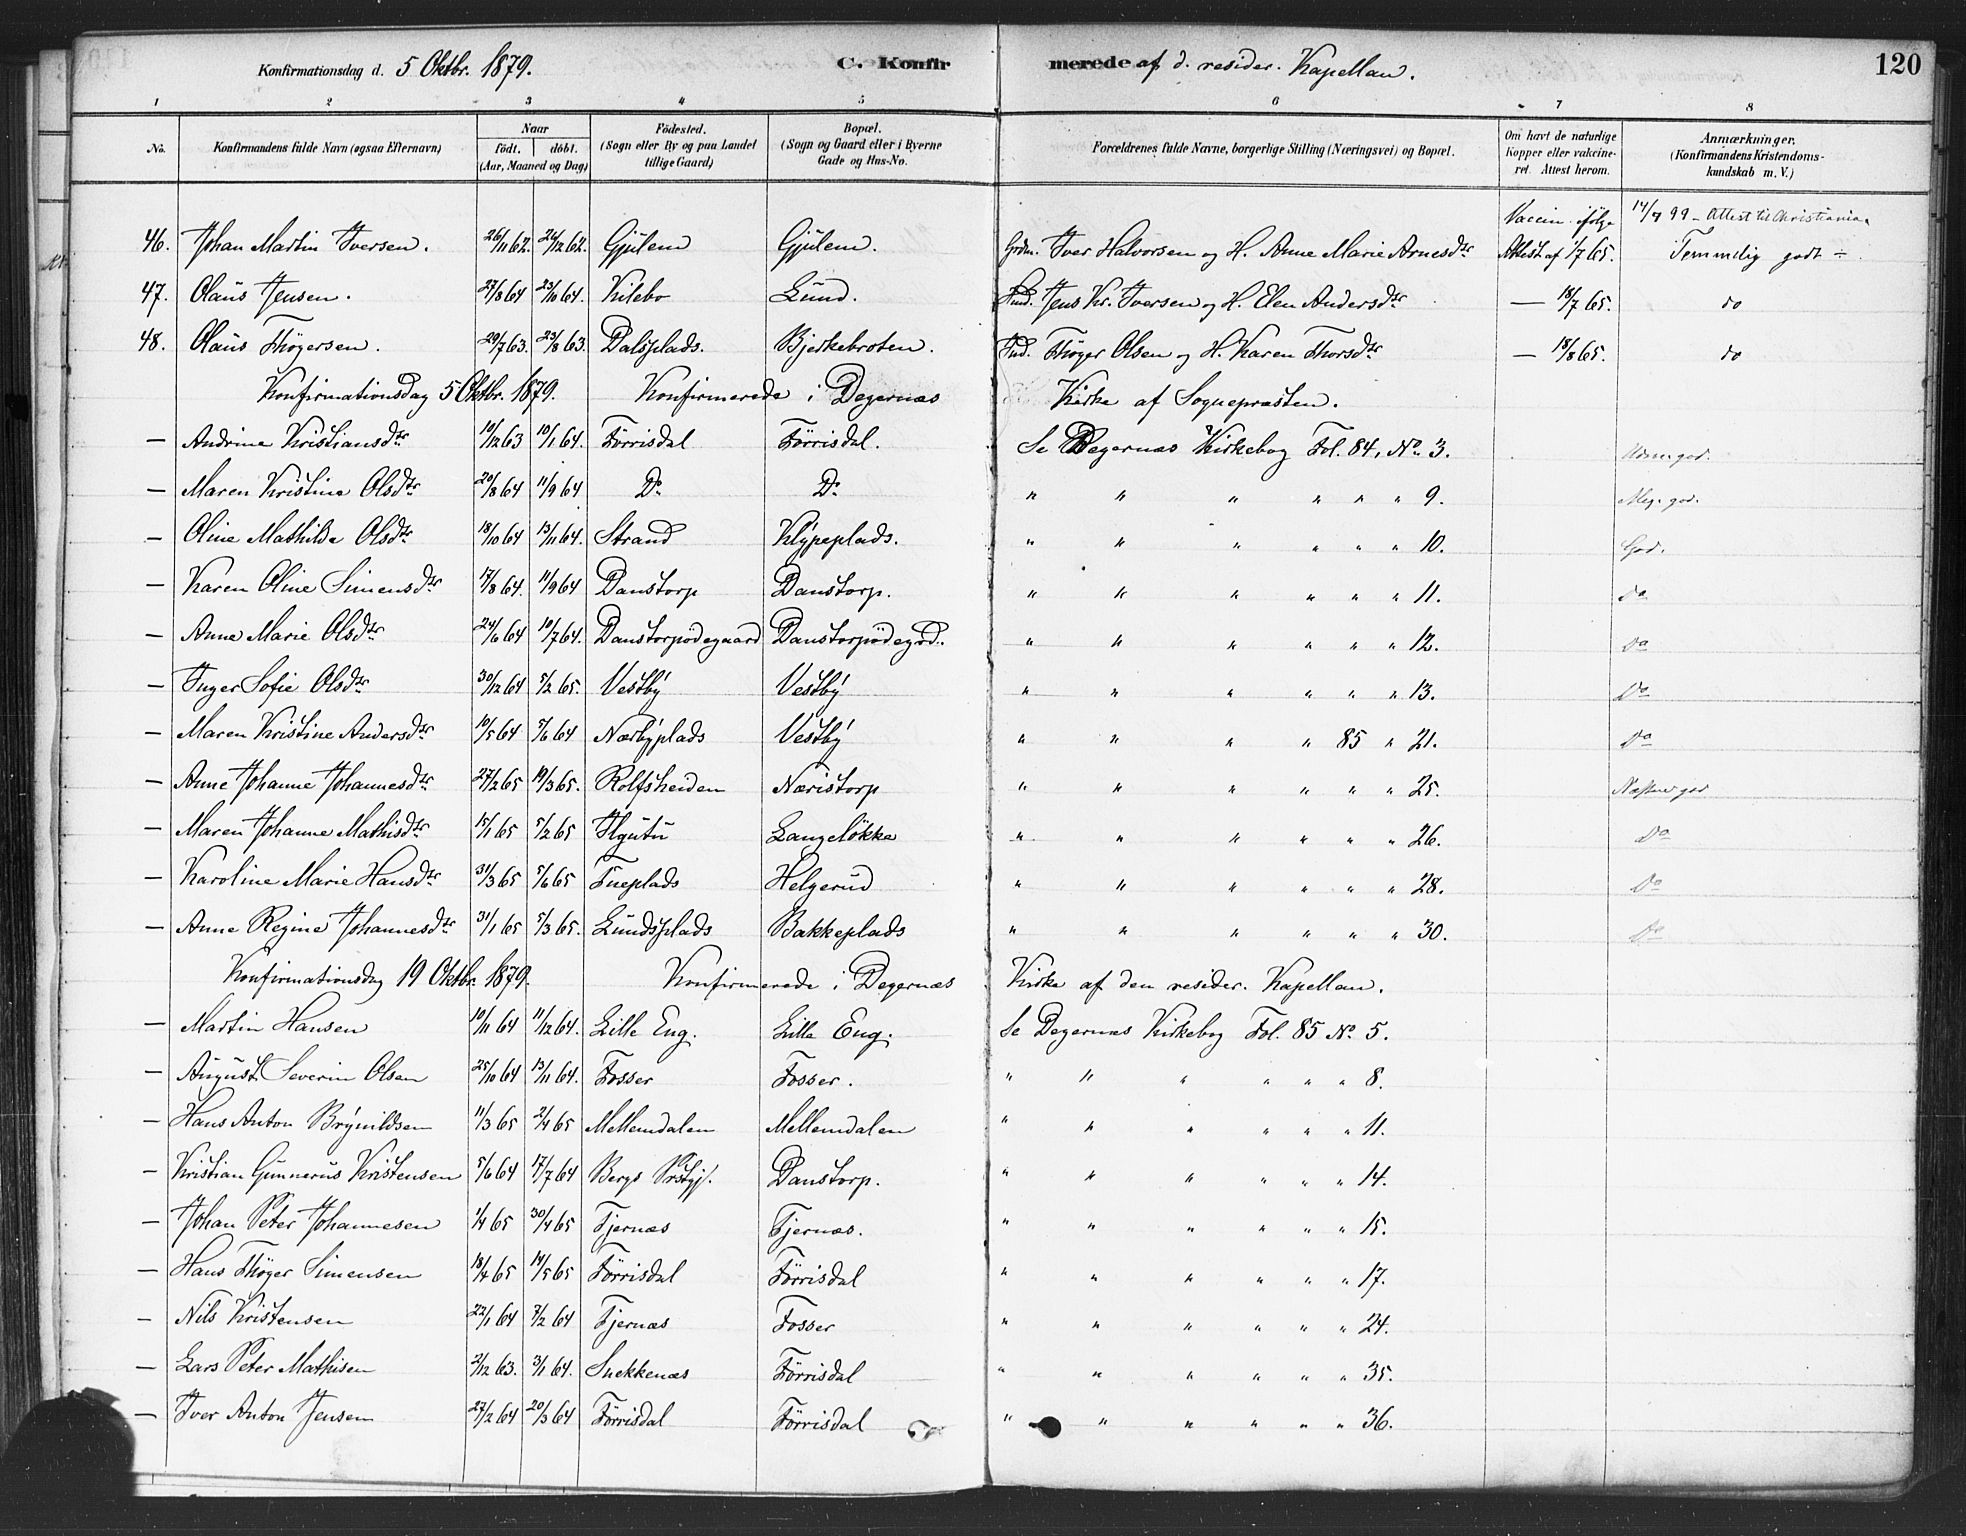 Konfirmationsdag d. 5 Oktbr. 1879. C. Konfirmerede af d. resider. Kapellan. 120
1 2 3 4 5 6 7 8
No. Konfirmandens fulde Navn (ogsaa Efternavn) Naar født. døbt. (Aar, Maaned og Dag) Fødested. (Sogn eller By og paa Landet tillige Gaard) Bopæl. (Sogn og Gaard eller i Byerne Gade og Hus-No. Forældrenes fulde Navne, borgerlige Stilling (Næringsvei) og Bopæl. Om havt de naturlige Kopper eller vakcineret. Attest herom. Anmærkninger. (Konfirmandens Kristendomskundskab m. V.)
46. Johan Martin Iversen. 26/11 62. 26/12 62. Gjulem Gjulem. Grdm. Iver Halvorsen og H. Anne Marie Arnesdtr Vaccin. ifølge Attest af 1/7 65. 14/4 99 - Attest til Christiania. Temmelig godt ÷
47. Olaus Jensen. 27/8 64 23/10 64. Kilebo Lund. Ind. Jens Kr. Iversen og H. Elen Andersdtr — 18/7 65. do
48. Olaus Thøgersen. 29/7 63. 23/8 63. Dalsplads. Bjerkebroten. Ind. Thøger Olsen og H. Karen Thorsdtr — 18/8 65. do
Konfirmationsdag 5 Oktbr. 1879. Konfirmerede i Degernæs Kirke af Sognepræsten.
— Andrine Kristiansdtr 10/12 63 10/1 64. Førrisdal Førrisdal. Se Degernæs Kirkebog Fol. 84, No. 3.
— Maren Kristine Olsdtr 20/8 64 11/9 64 Do Do " " " " " " 9. Meg. god.
— Oline Mathilde Olsdtr 18/10 64 13/11 64. Strand Klypeplads. " " " " " " 10. God.
— Karen Oline Simensdtr 17/8 64. 11/9 64 Danstorp Danstorp. " " " " " " 11. Do
— Anne Marie Olsdtr 24/6 64 10/7 64. Danstorpødegaard Danstorpødegrd. " " " " " " 12. Do
— Inger Sofie Olsdtr 30/12 64 5/2 65. Vestby Vestby " " " " " " 13. Do
— Maren Kristine Andersdtr 10/5 64 5/6 64 Nærbyplads Vestby " " " " 85 " 21. Do
— Anne Johanne Johannesdtr 27/2 65 19/3 65. Rolfsheiden Næristorp " " " " " " 25.
— Maren Johanne Mathisdtr 15/1 65 5/2 65 Langeløkke " " " " " " 26. Do
— Karoline Marie Hansdtr 31/3 65 5/6 65 Tueplads Helgerud " " " " " " 28. Do
— Anne Regine Johannesdtr 31/1 65 5/3 65. Lundsplads Bakkeplads " " " " " " 30. Do
Konfirmationsdag 19 Oktbr. 1879. Konfirmerede i Degernæs Kirke af den resider. Kapellan.
— Martin Hansen 10/11 64 11/12 64. Lille Eng. Lille Eng. Se Degernæs Kirkebog Fol. 85 No. 5.
— August Severin Olsen 25/10 64 13/11 64. Fosser Fosser. " " " " " " 8.
— Hans Anton Brynildsen 11/3 65 2/4 65 Mellemdalen Mellemdalen " " " " " " 11.
— Kristian Gunnerus Kristensen 5/6 64 17/7 64 Bergs Prstgj. Danstorp. " " " " " " 14.
— Johan Peter Johannesen 1/4 65 30/4 65 Tjernæs Tjernæs. " " " " " " 15.
— Hans Thøger Simensen 18/4 65 14/5 65 Førrisdal Førrisdal " " " " " " 17.
— Nils Kristensen 22/1 64 7/2 64 Tjernæs Fosser " " " " " " 24.
— Lars Peter Mathisen 2/12 63. 3/1 64. Snekkenæs Førrisdal " " " " " " 35.
— Iver Anton Jensen 27/2 64 20/3 64 Førrisdal Førrisdal " " " " " " 36.